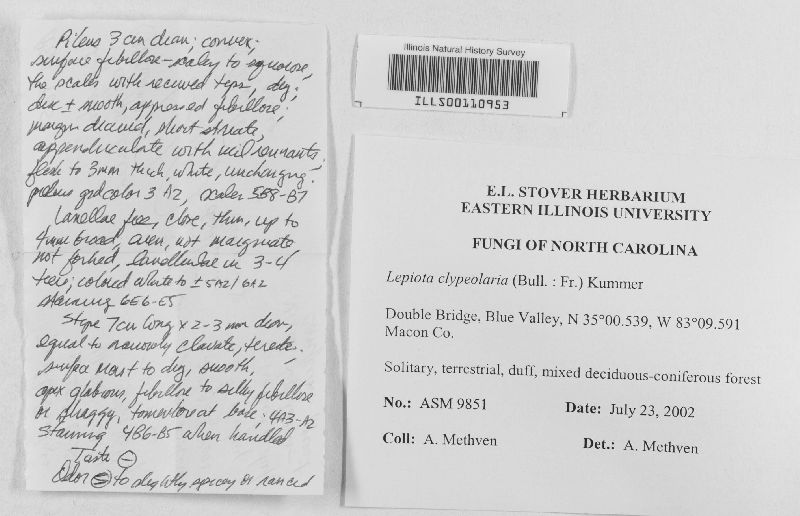 Pileus 3 cm diam; convex;
surface fibrillose-scaley to squarrose,
the scales with recurved tips, dry;
disc ± smooth, appressed fibrillose;
margin decurved, short striate,
appendiculate with veil remnants;
flesh to 3mm thick, white, unchanging;
pileus grd color 3A2, scales 5B8-B7
Lamellae free, close, thin, up to
4mm broad, even, not marginate
not forked, lamellulae in 3-4
tiers; colored white to ± 5A2/6A2
staining 6E6-E5
Stipe 7cm long x 2-3 mm diam,
equal to narrowly clavate, terete;
surface moist to dry, smooth,
apex glabrous, fibrillose to silky fibrillose
or shaggy, tomentose at base; 4A3-A2
staining 4B6-B5 when handled
Taste ⊖
Odor ⊖ to slightly spicey or rancid
Illinois Natural History Survey
ILLS00110953
E.L. STOVER HERBARIUM
EASTERN ILLINOIS UNIVERSITY
FUNGI OF NORTH CAROLINA
Lepiota clypeolaria (Bull. : Fr.) Kummer
Double Bridge, Blue Valley, N 35°00.539, W 83°09.591
Macon Co.
Solitary, terrestrial, duff, mixed deciduous-coniferous forest
No.: ASM 9851 Date: July 23, 2002
Coll: A. Methven Det.: A. Methven